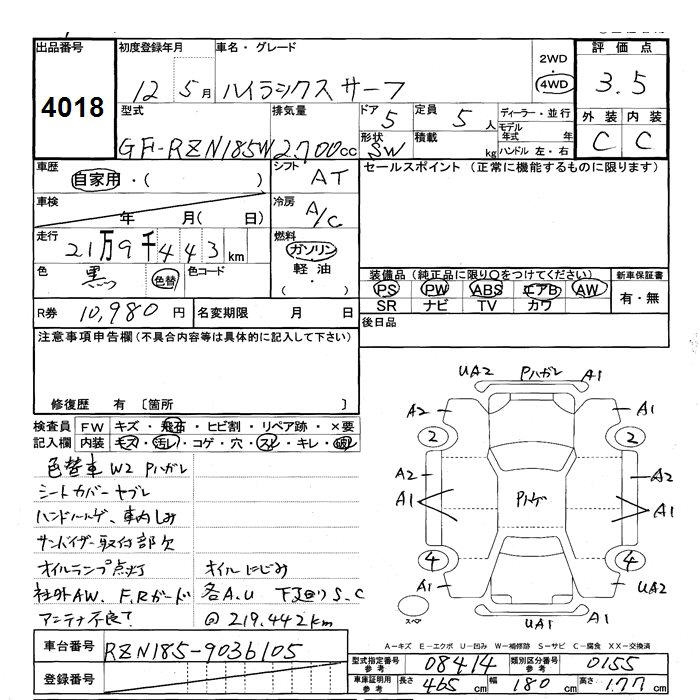 出品番号 初度登録年月 車名・グレード 2WD 評価点
4018 12 5月 ハイラックスサーフ 4WD 3.5
型式 排気量 ドア 5 定員 5人 ディーラー・並行 外装 内装
GF-RZN185W 2,700cc 形状 SW 積載 kg モデル年式 年 C C
ハンドル 左・右
車歴 自家用・( ) シフト AT セールスポイント (正常に機能するものに限ります)
車検 年 月( 日) 冷房 A/C
走行 21万9千443km 燃料 ガソリン
色 黒 色替 色コード 軽油 ・ 装備品 (純正品に限り〇をつけてください) 新車保証書
PS PW ABS エアB AW 有・無
SR ナビ TV カワ
R券 10,980円 名変期限 月 日 後日品
注意事項申告欄(不具合内容等は具体的に記入して下さい)
修復歴 有 〔箇所 〕
検査員 FW キズ・飛石・ヒビ割・リペア跡・×要
記入欄 内装 キズ・汚レ・コゲ・穴・スレ・キレ・
色替車 W2 Pハガレ
シートカバーヤブレ
ハンドルハゲ、車内しみ
サンバイザー取付部欠
オイルランプ点灯 オイルにじみ
社外AW、F,Rガード 各A,U 下廻りS,C
アンテナ不良? @219,442km
UA2 Pハガレ A1
A2 A1
2 2
A2 A2
A1 Pハゲ A1
4 4
A1 UA2
スペア UA1
A−キズ E−エクボ U−凹み W−補修跡 S−サビ C−腐食 XX−交換済
車台番号 RZN185-9036105
登録番号
型式指定番号 参考 08414 類別区分番号 参考 0155
車庫証明用 参考 長さ 465cm 幅 180cm 高さ 177cm